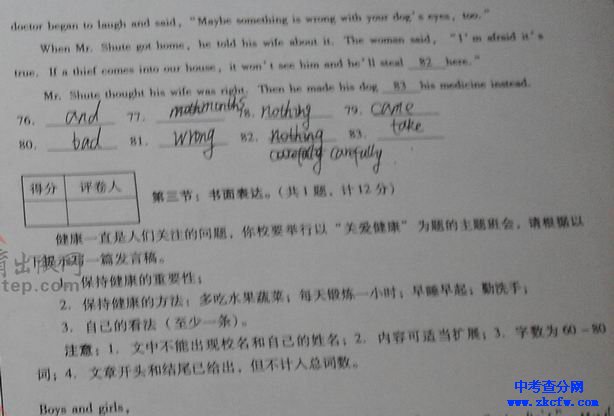 doctor began to laugh and said, "Maybe something is wrong with your dog's eyes, too."
When Mr. Shute got home, he told his wife about it. The woman said, "I'm afraid it's
true. If a thief comes into our house, it won't see him and he'll steal 82 here."
Mr. Shute thought his wife was right. Then he made his dog 83 his medicine instead.
76. and 77. 78. nothing 79. came
80. bad 81. wrong 82. nothing 83. take
carefully carefully
得分 评卷人
第三节：书面表达。（共1题，计12分）
健康一直是人们关注的问题，你校要举行以“关爱健康”为题的主题班会，请根据以
下提示写一篇发言稿。
保持健康的重要性；
2．保持健康的方法：多吃水果蔬菜；每天锻炼一小时；早睡早起；勤洗手；
3．自己的看法（至少一条）。
注意：1．文中不能出现校名和自己的姓名；2．内容可适当扩展；3．字数为60-80
词；4．文章开头和结尾已给出，但不计入总词数。
Boys and girls,
育出版网
tep.com
中考查分网
www.zkcfw.com